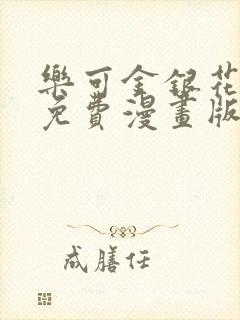 樂可金銀花
免費漫畫版
成膳任